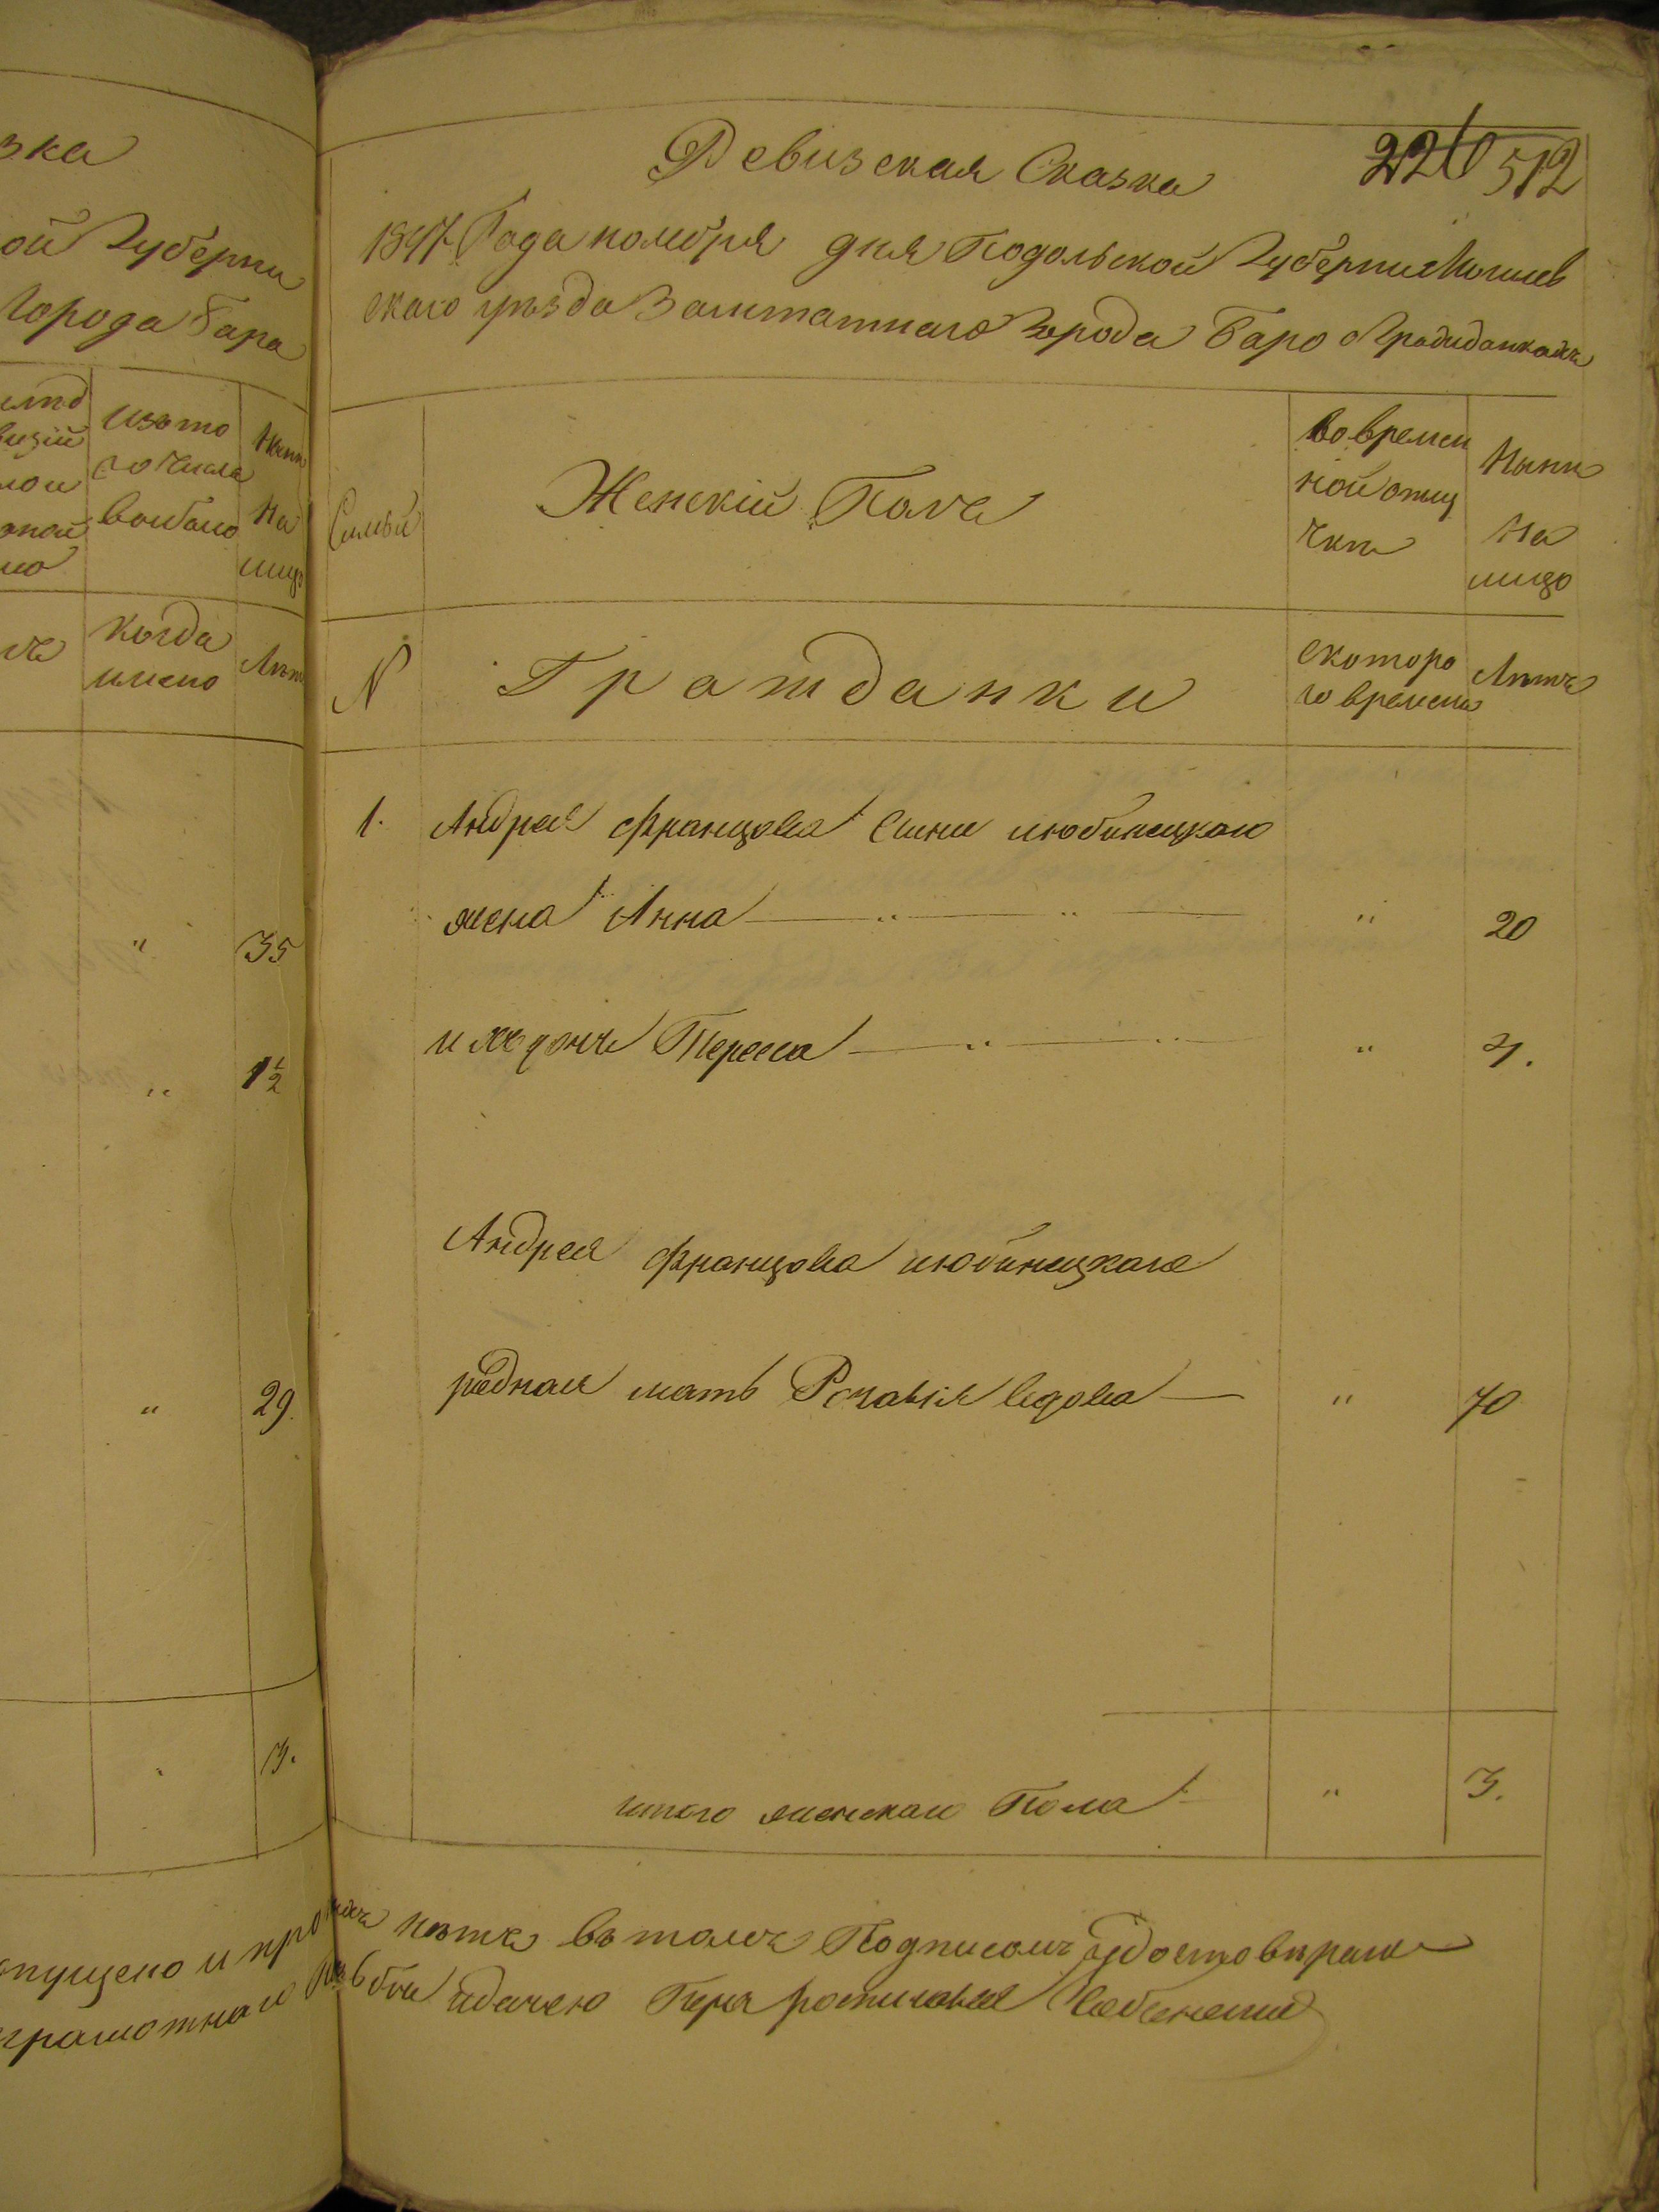 зка
ой Губерни
города Бара
изъ то
го числа
выбыло
На
лицо
когда
имено
Лѣт
" 35
" 1½
" 29.
3.
226 512
Ревизская Сказка
1847 Года ноября дня Подольской Губернии Могилев
скаго уѣзда Заштатнаго города Баро о Гражданкахъ
Семьи
Женскій Полъ
Во времен
ной отлу
чкѣ
Нынѣ
На
лицо
N
Гражданки
с которо
го времени
Лѣтъ
1. Андрея Францова Сына Любинецкаго
жена Анна " 20
ихъ дочь Тересса " 4.
Андрея Францова Любинецкаго
родная мать Розалія вдова " 70
итого женскаго Пола " 3.
пущено и про нѣтъ въ томъ Подписомъ удостовѣряю
грамотнаго